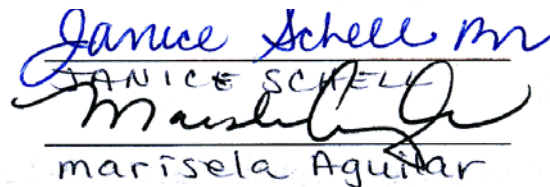 Janice Schell
JANICE SCHELL
marisela Aguilar